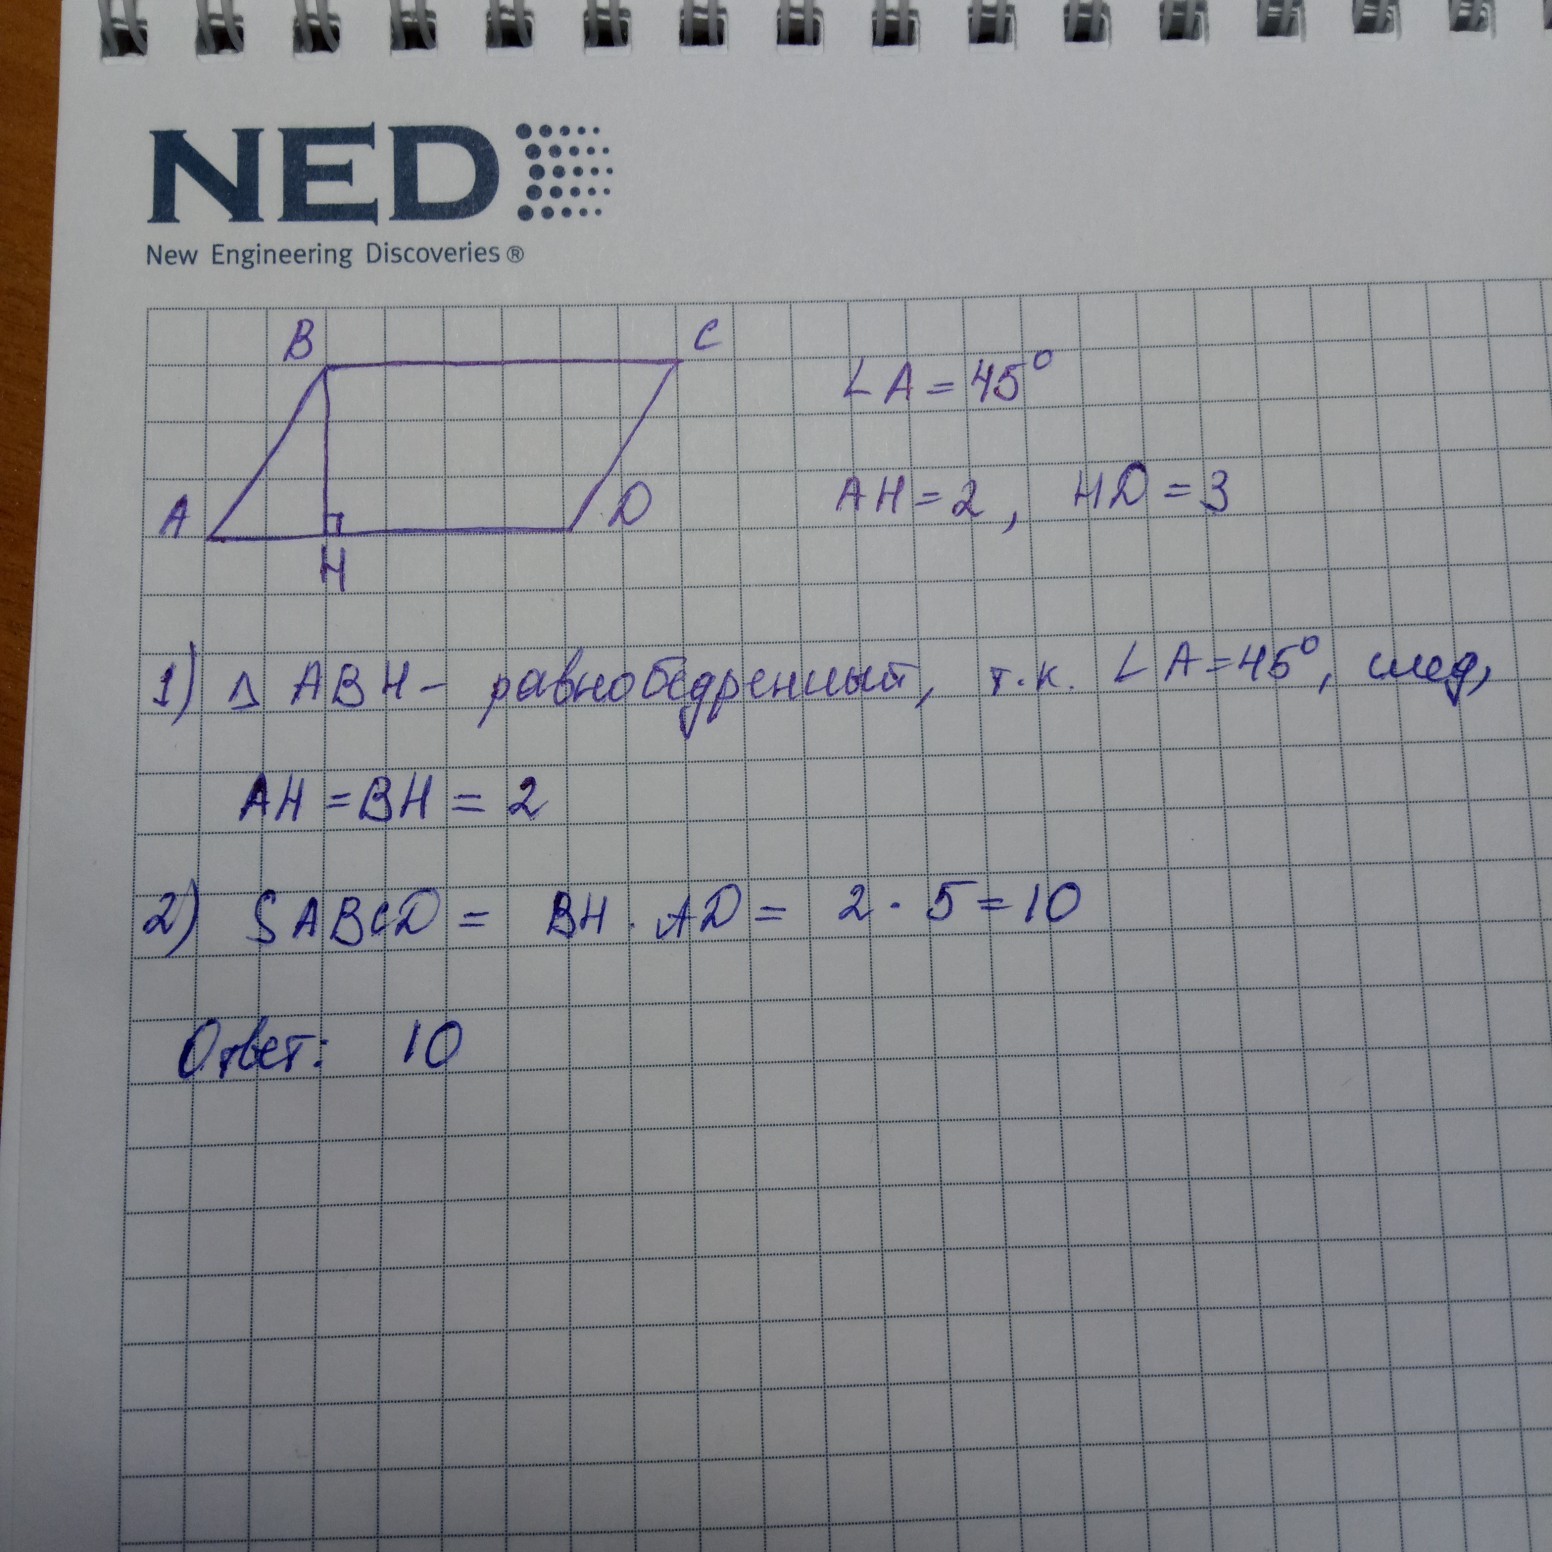 NED
New Engineering Discoveries ®
B C
∠A = 45°
A H D
AH = 2, HD = 3
1) △ ABH - равнобедренный, т.к. ∠A = 45°, след,
AH = BH = 2
2) SABCD = BH · AD = 2 · 5 = 10
Ответ: 10